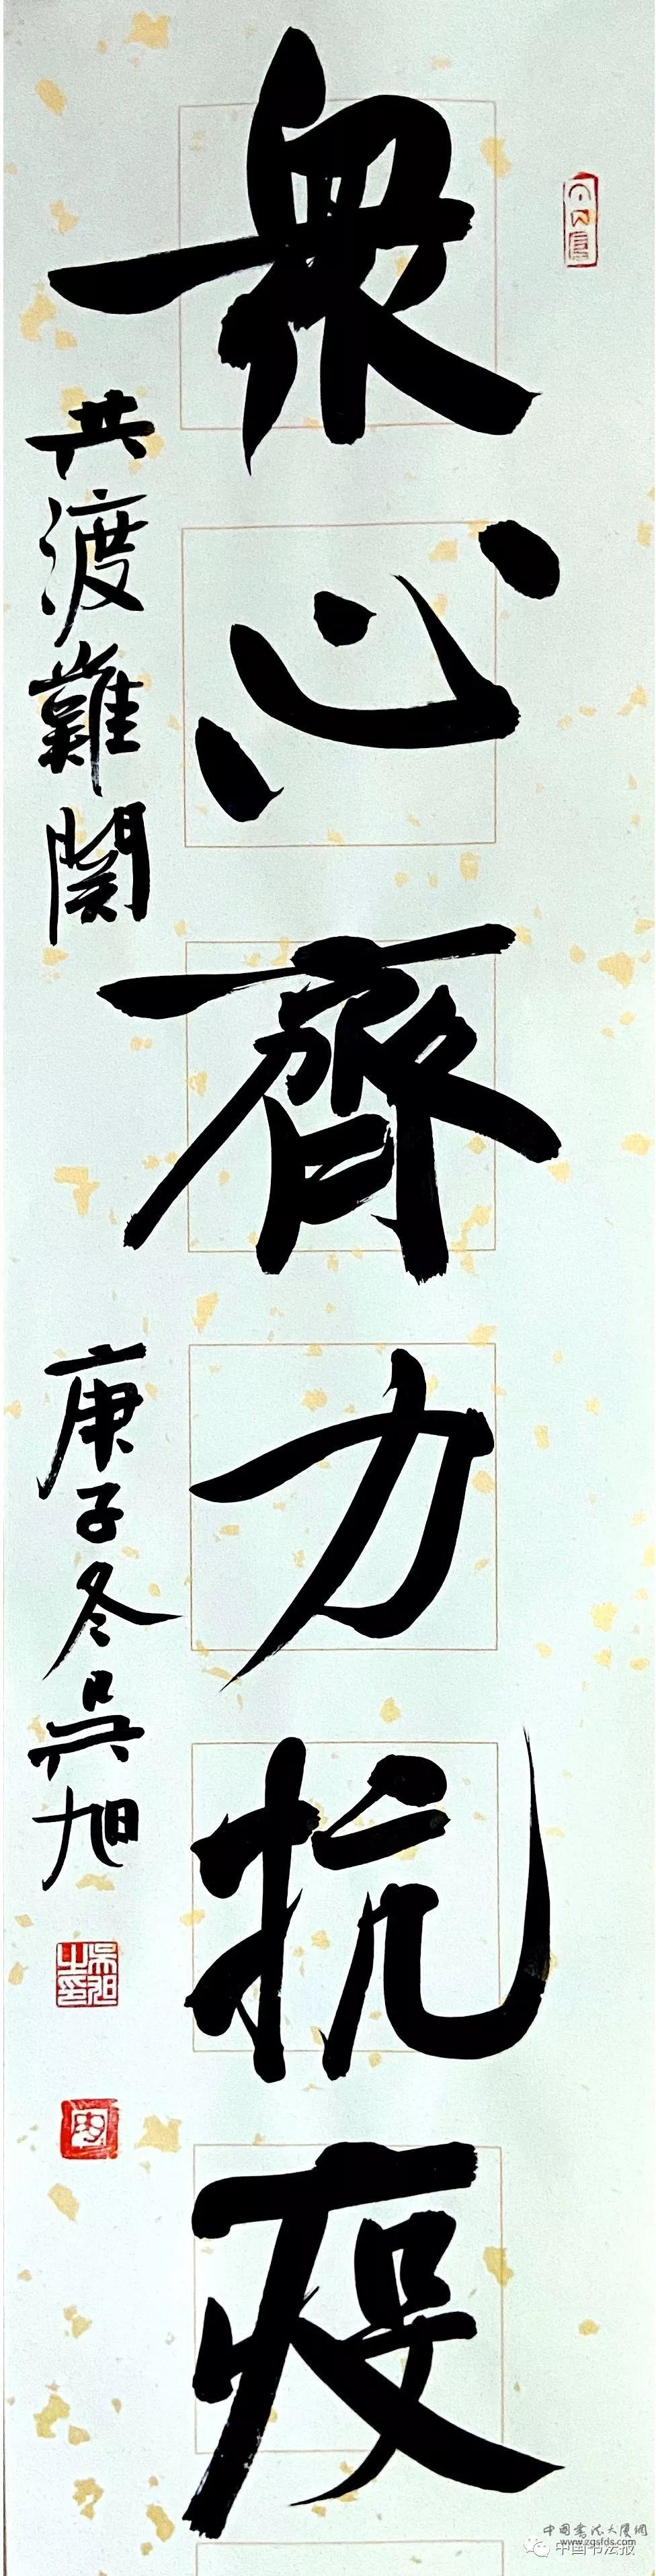 衆心齊力抗疫
共渡難関
庚子冬吳旭
吳旭之印
中国书法大厦網
www.zgsfds.com
中国书法报